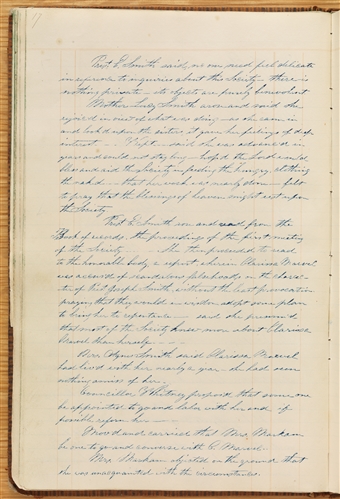 17
Prest. E. Smith said, no one need feel delicate
in reference to inquiries about this Society— there is
nothing private— its objects are purely benevolent
Mother Lucy Smith arose and said she
rejoiced in view of what was doing— as she came in
and look'd upon the sisters it gave her feelings of deep
interest - - Wept— said she was advanced in
years and could not stay long— hop'd the Lord would
bless and aid the Society in feeding the hungry, clothing
the naked— that her work was nearly done— felt
to pray that the blessings of heaven might rest upon
the Society
Prest. E. Smith rose and read from the
Book of records, the proceedings of the first meeting
of the Society - - She then proceeded to read
to the honorable body, a report wherein Clarissa Marvel
was accused of scandalous falsehoods on the charac-
ter of Prest. Joseph Smith without the least provocation
praying that they would in wisdom adopt some plan
to bring her to repentance— said she presum'd
that most of the Society knew more about Clarissa
Marvel than herself - - -
Mrs. Agnes Smith said Clarissa Marvel
had lived with her nearly a year— she had seen
nothing amiss of her.
Councillor Whitney propos'd that some one
be appointed to go and labor with her and if
possible reform her - -
Mov'd and carried that Mrs. Markam
be one to go and converse with C. Marvel.
Mrs. Markam objected on the ground that
she was unacquainted with the circumstances.